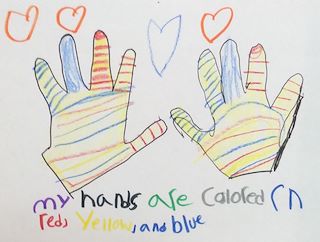 my hands are Colored in
red, Yellow, and blue